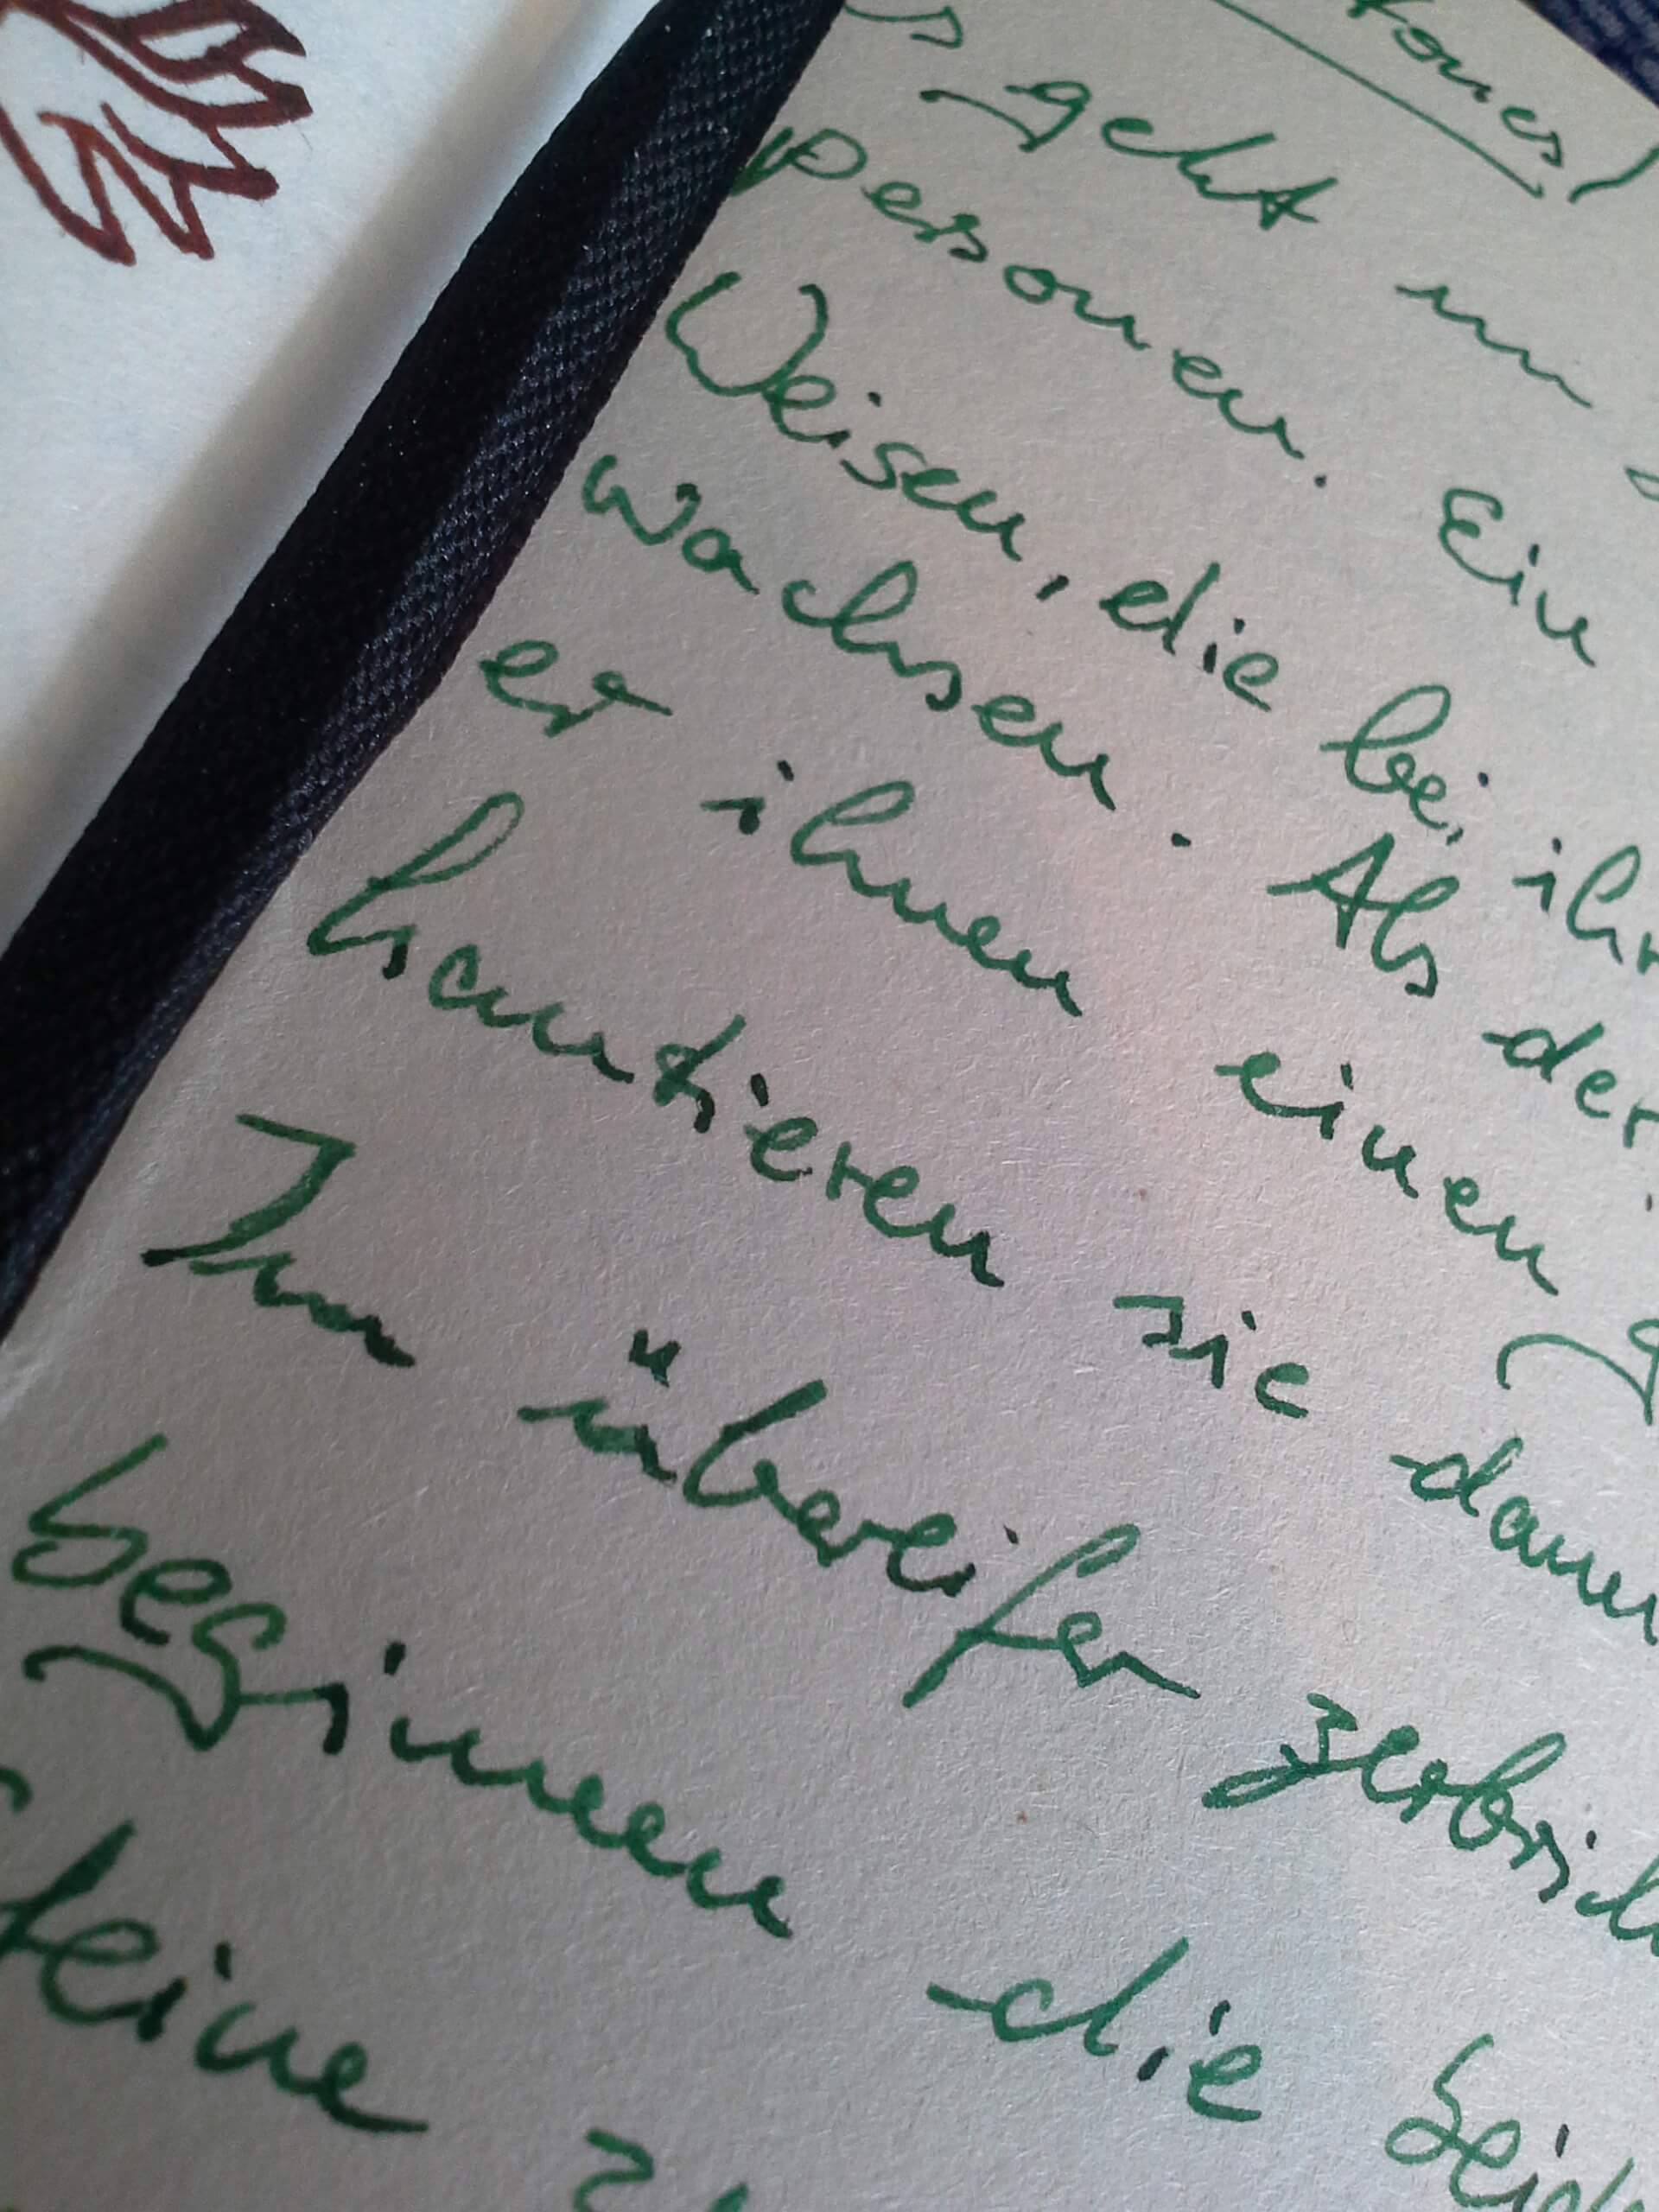 tones)
geht um
Personen. Ein
Weisen, die bei ihr
wachsen. Als der
er ihnen einen
hantieren sie dann
Im übereifer zerbrich
beginnen die beid
Steine